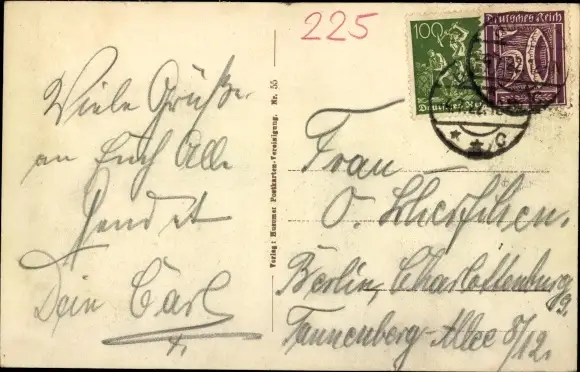 225
100
Deutsches Reich
50
Viele Grüße
an Euch Alle
sendet
Dein Carl
Verlag: Husumer Postkarten-Vereinigung. Nr. 55
Frau
O.
Berlin, Charlottenburg
9.
Tannenberg-Allee 8/12.
* * C